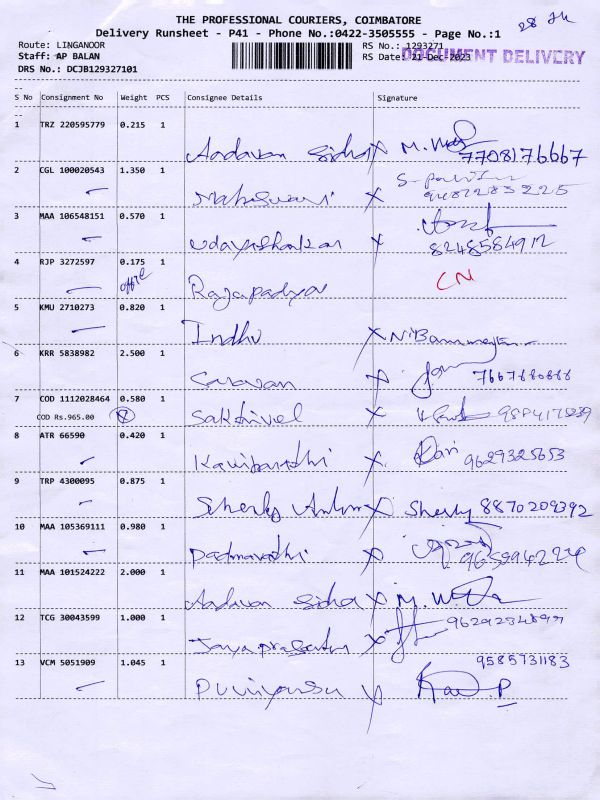 THE PROFESSIONAL COURIERS, COIMBATORE
Delivery Runsheet - P41 - Phone No.:0422-3505555 - Page No.:1
Route: LINGANOOR RS No.: 1293271
Staff: AP BALAN RS Date: 21-Dec-2023 DOCUMENT DELIVERY
DRS No.: DCJB129327101
S No Consignment No Weight PCS Consignee Details Signature
1 TRZ 220595779 0.215 1
Aadavan Sidha x 7708176667
2 CGL 100020543 1.350 1
Maheswari x
3 MAA 106548151 0.570 1
Udayashankar x
4 RJP 3272597 0.175 1
office Rajapadya CN
5 KMU 2710273 0.820 1
Indhu x
6 KRR 5838982 2.500 1
Saravan x
7 COD 1112028464 0.580 1
COD Rs.965.00 Sakthivel x
8 ATR 66590 0.420 1
Kavibarathi x 9629325653
9 TRP 4300095 0.875 1
Sherly x Sherly 8870209392
10 MAA 105369111 0.980 1
Padmavathi x
11 MAA 101524222 2.000 1
Aadavan Sidha x
12 TCG 30043599 1.000 1
Jayaprakash x
13 VCM 5051909 1.045 1 9585731183
x